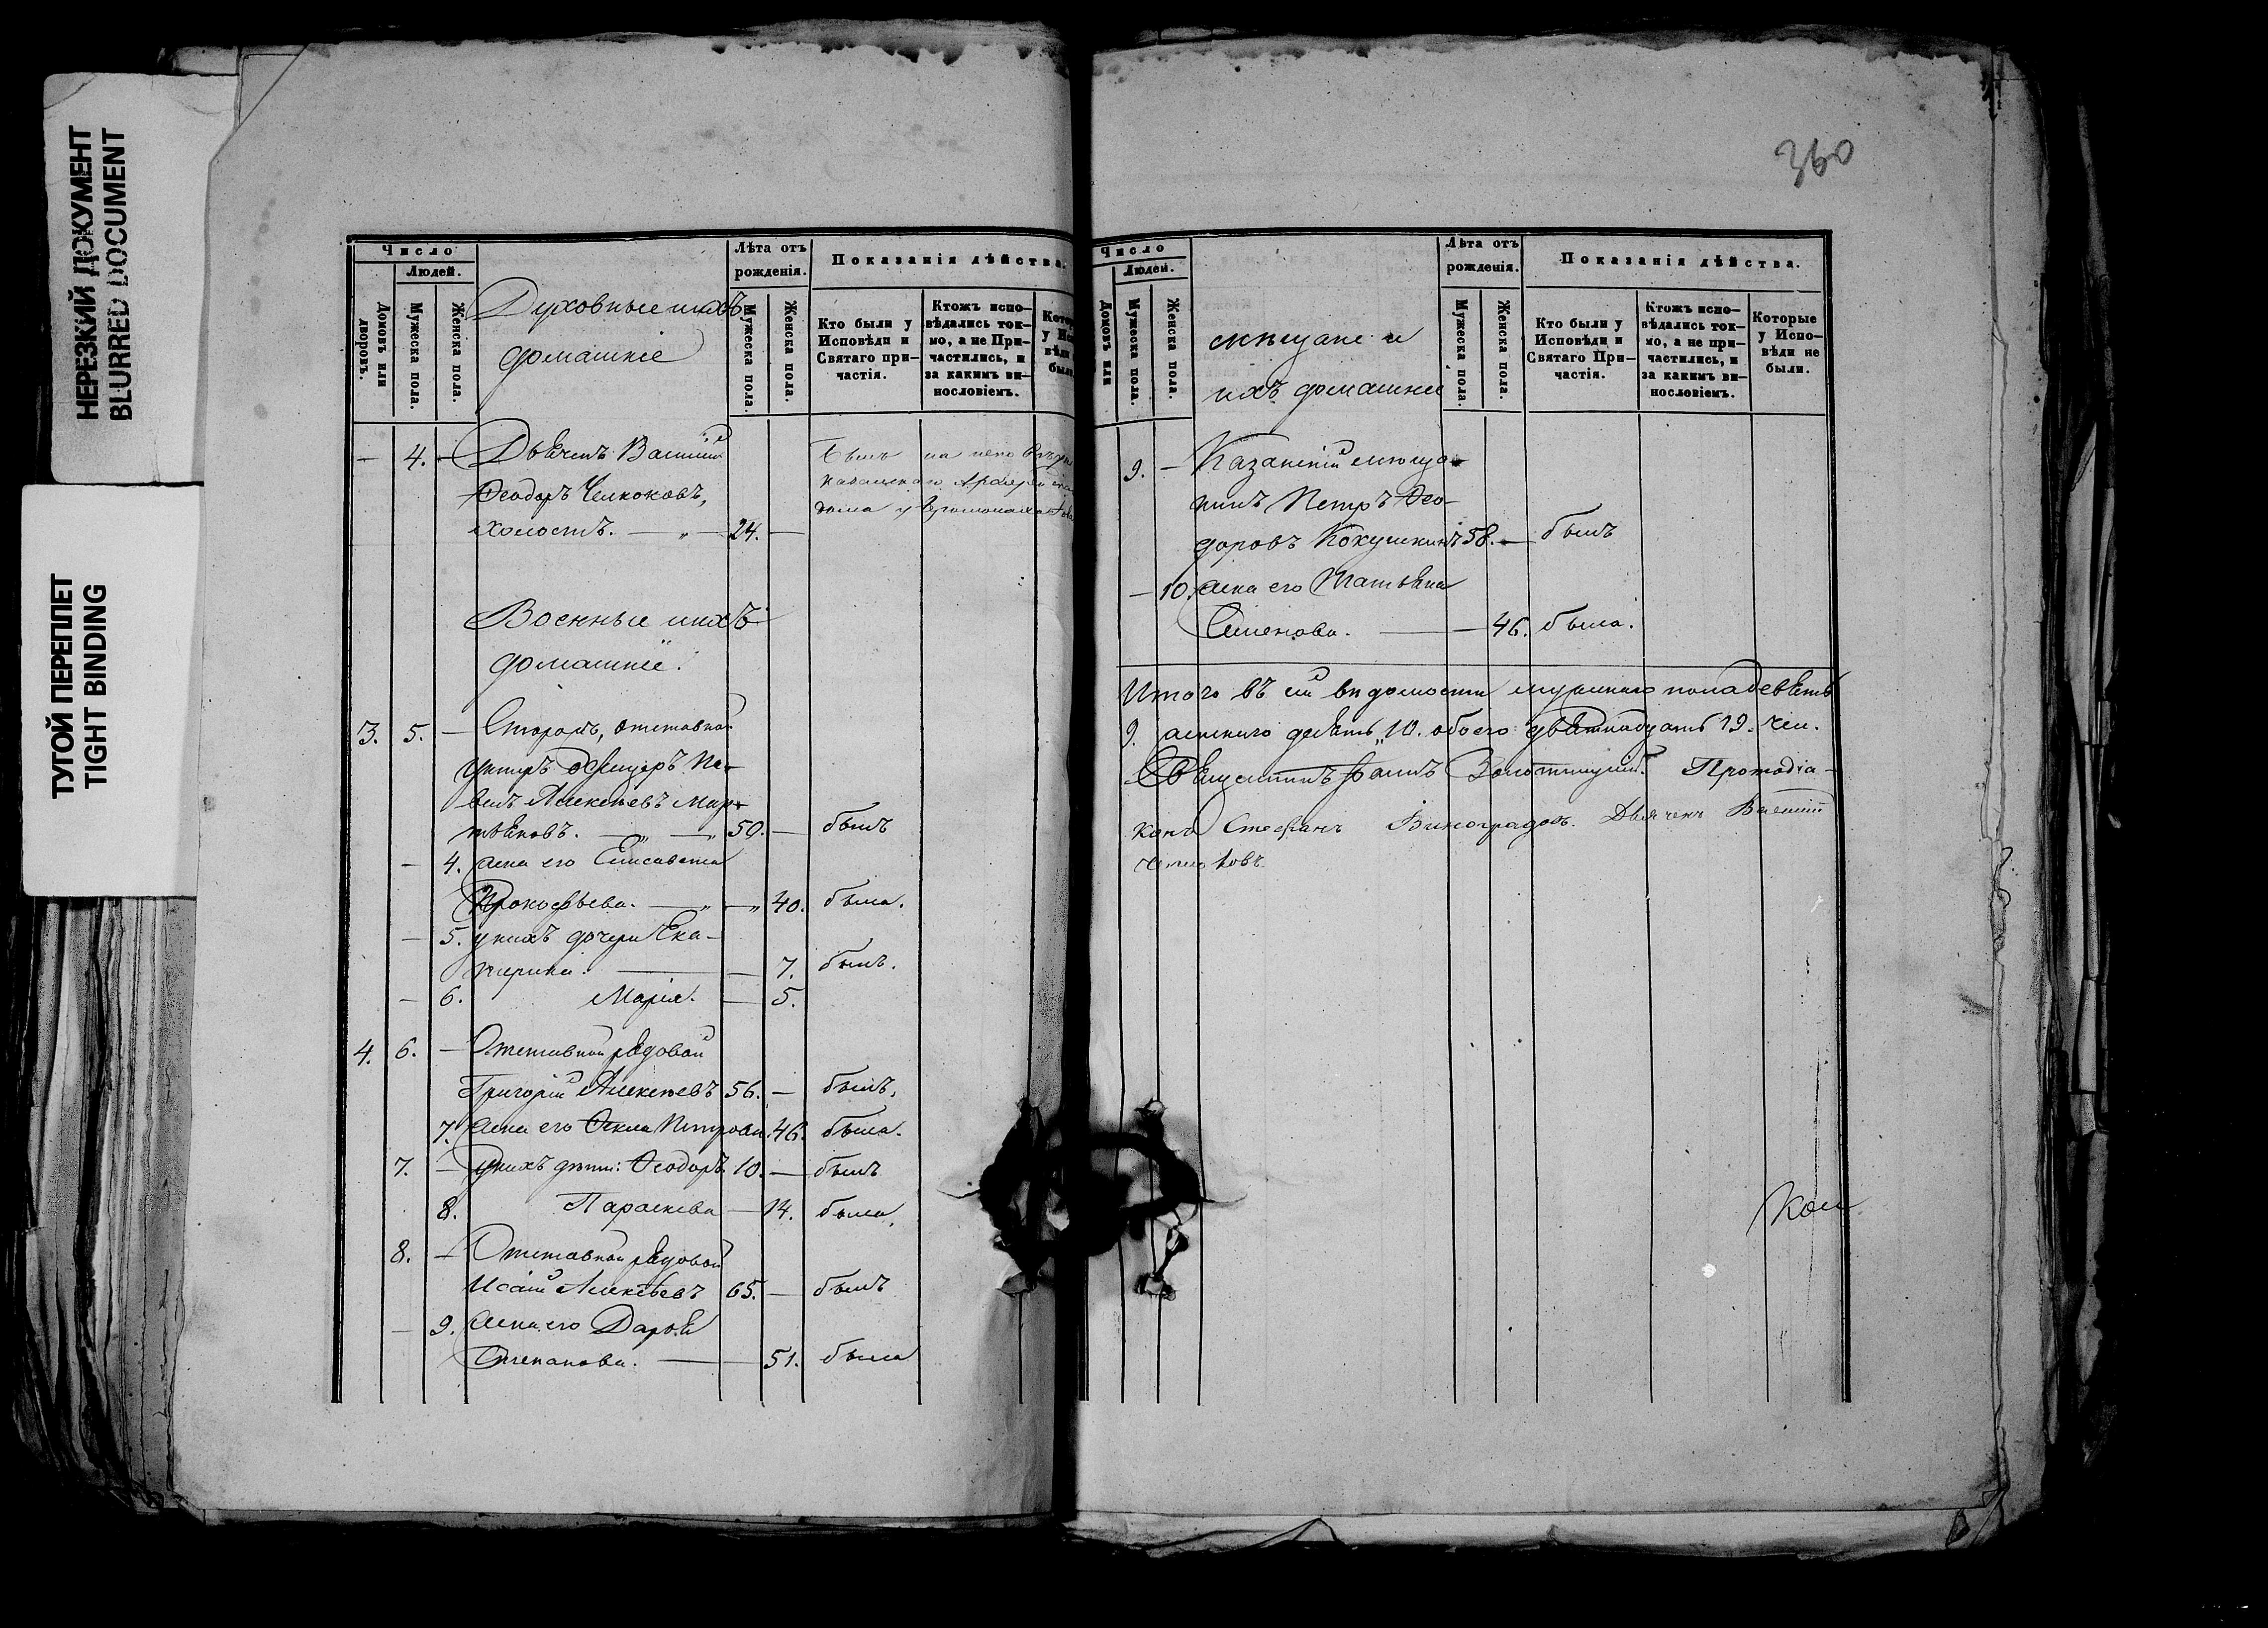 НЕРЕЗКИЙ ДОКУМЕНТ
BLURRED DOCUMENT
ТУГОЙ ПЕРЕПЛЕТ
TIGHT BINDING
Число
Людей.
Домовъ или дворовъ.
Мужеска пола.
Женска пола.
Духовные и ихъ
домашніе
Лѣта отъ
рожденія.
Мужеска пола.
Женска пола.
Показанія дѣйства.
Кто были у
Исповѣди и
Святаго при-
частія.
Ктожъ испо-
вѣдались ток-
мо, а не При-
частились, и
за какимъ ви-
нословіемъ.
— 4. — Дьячекъ Василий
Ѳеодоръ Челноковъ,
холостъ. — „ — 24. —
Былъ на
дома у
Военные и ихъ
домашніе.
3. 5. — Сторожъ, отставной
унтеръ офицеръ Па-
велъ Алексѣевъ Мар-
тьяновъ. — „ — „ 59. — былъ
— 4. жена его Елисавета
Прокофьева. — „ — „ 40. была.
— 5. у нихъ дочери Ека-
терина. — — 7. былъ.
— 6. Марія. — 5.
4. 6. — Отставной рядовой
Григорій Алексѣевъ 56. — былъ.
7. жена его Ѳекла Петрова. 46. была.
7. — у нихъ дѣти: Ѳеодоръ 10. — былъ
8. Параскева — 14. была.
8. — Отставной рядовой
Исаій Алексѣевъ 65. — былъ
— 9. жена его Дарья
Степанова. — — 51. была
360
Число
Людей.
Домовъ или
Мужеска пола.
Женска пола.
мѣщане и
ихъ домашніе
Лѣта отъ
рожденія.
Мужеска пола.
Женска пола.
Показанія дѣйства.
Кто были у
Исповѣди и
Святаго При-
частія.
Ктожъ испо-
вѣдались ток-
мо, а не при-
частились, и
за какимъ ви-
нословіемъ.
Которые
у Испо-
вѣди не
были.
9. — Казанскій мѣща-
нинъ Петръ Ѳео-
доровъ Кокушкинъ 58. — былъ
— 10. жена его Татьяна
Семенова. — — 46. была.
Итого въ сей вѣдомости мужеска пола девять
9. женскаго десять 10. обоего девятнадцать 19. чел.
Священникъ Золотницкій. Протодіа-
конъ Стефанъ Виноградовъ. Дьячекъ Василий
Челноковъ